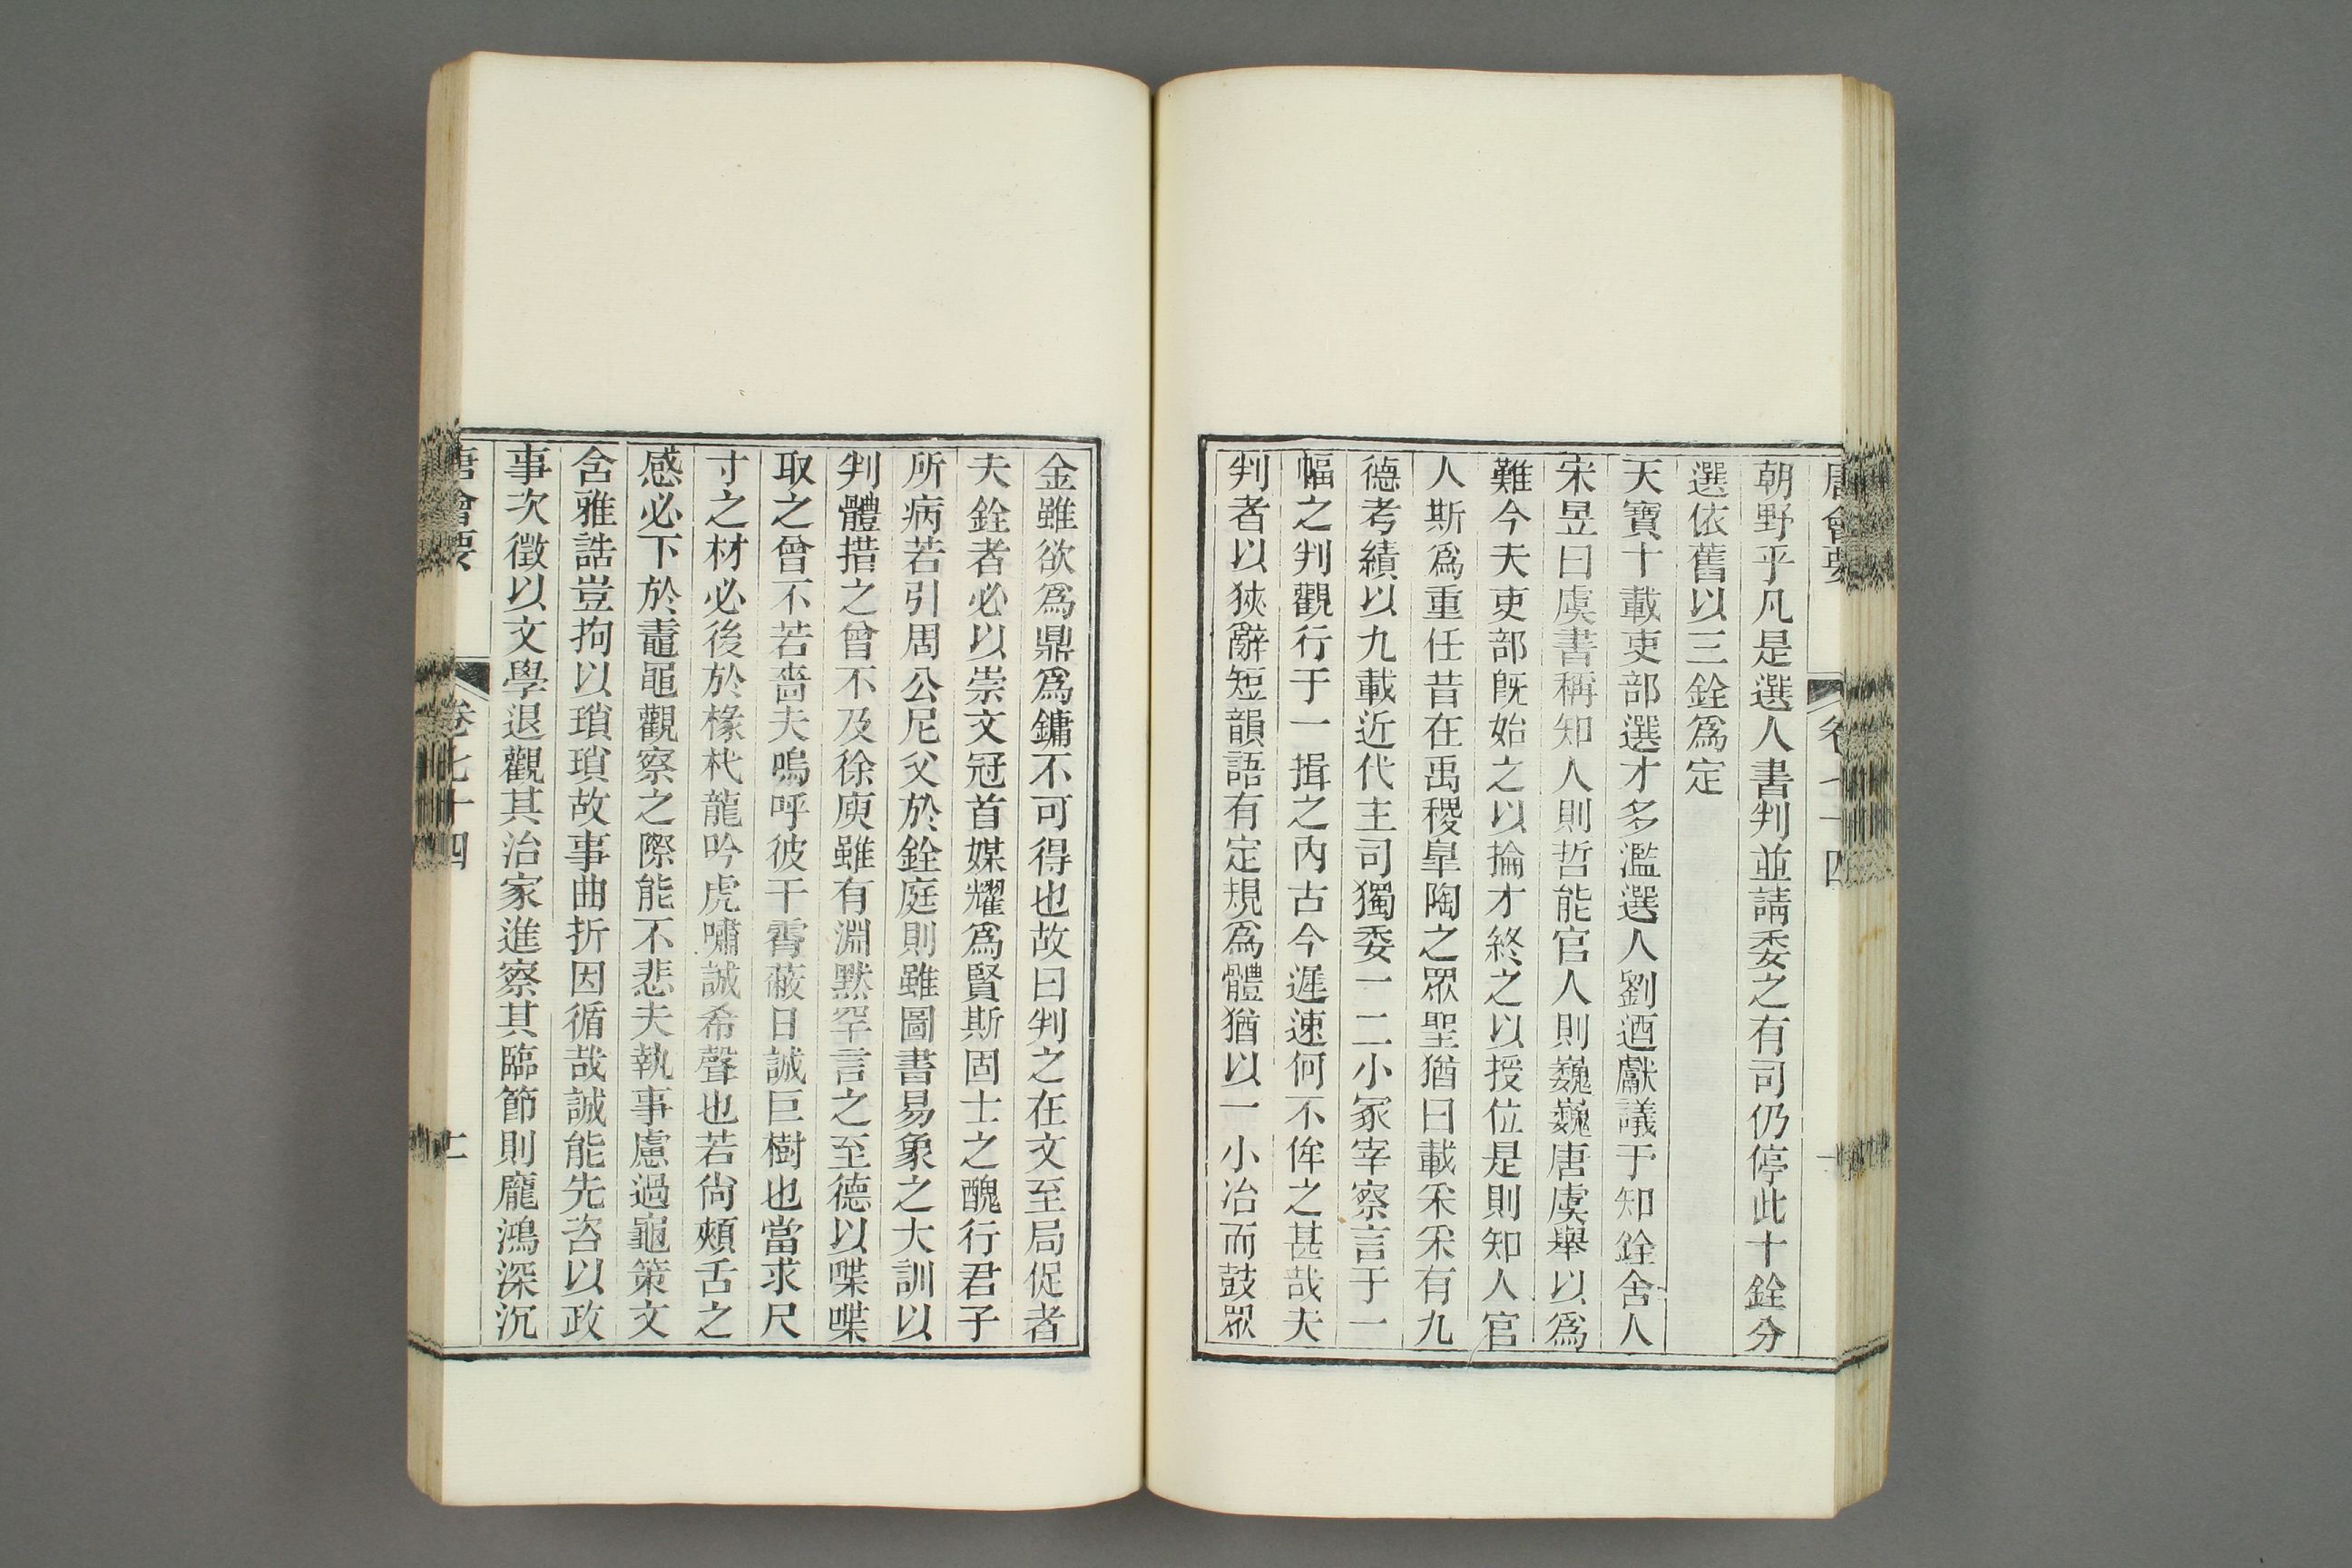 唐會要 卷七十四
朝野乎凡是選人書判並請委之有司仍停此十銓分
選依舊以三銓爲定
天寶十載吏部選才多濫選人劉迺獻議于知銓舍人
宋昱曰虞書稱知人則哲能官人則巍巍唐虞舉以爲
難今夫吏部旣始之以掄才終之以授位是則知人官
人斯爲重任昔在禹稷皐陶之眾聖猶曰載采采有九
德考績以九載近代主司獨委一二小冢宰察言于一
幅之判觀行于一揖之內古今遲速何不侔之甚哉夫
判者以狹辭短韻語有定規爲體猶以一小冶而鼓眾
金雖欲爲鼎爲鏞不可得也故曰判之在文至局促者
夫銓者必以崇文冠首媒耀爲賢斯固士之醜行君子
所病若引周公尼父於銓庭則雖圖書易象之大訓以
判體措之曾不及徐庾雖有淵默罕言之至德以喋喋
取之曾不若嗇夫嗚呼彼干霄蔽日誠巨樹也當求尺
寸之材必後於椽杙龍吟虎嘯誠希聲也若尙頰舌之
感必下於鼃黽觀察之際能不悲夫執事慮過龜策文
含雅誥豈拘以瑣瑣故事曲折因循哉誠能先咨以政
事次徵以文學退觀其治家進察其臨節則龐鴻深沉
唐會要 卷七十四